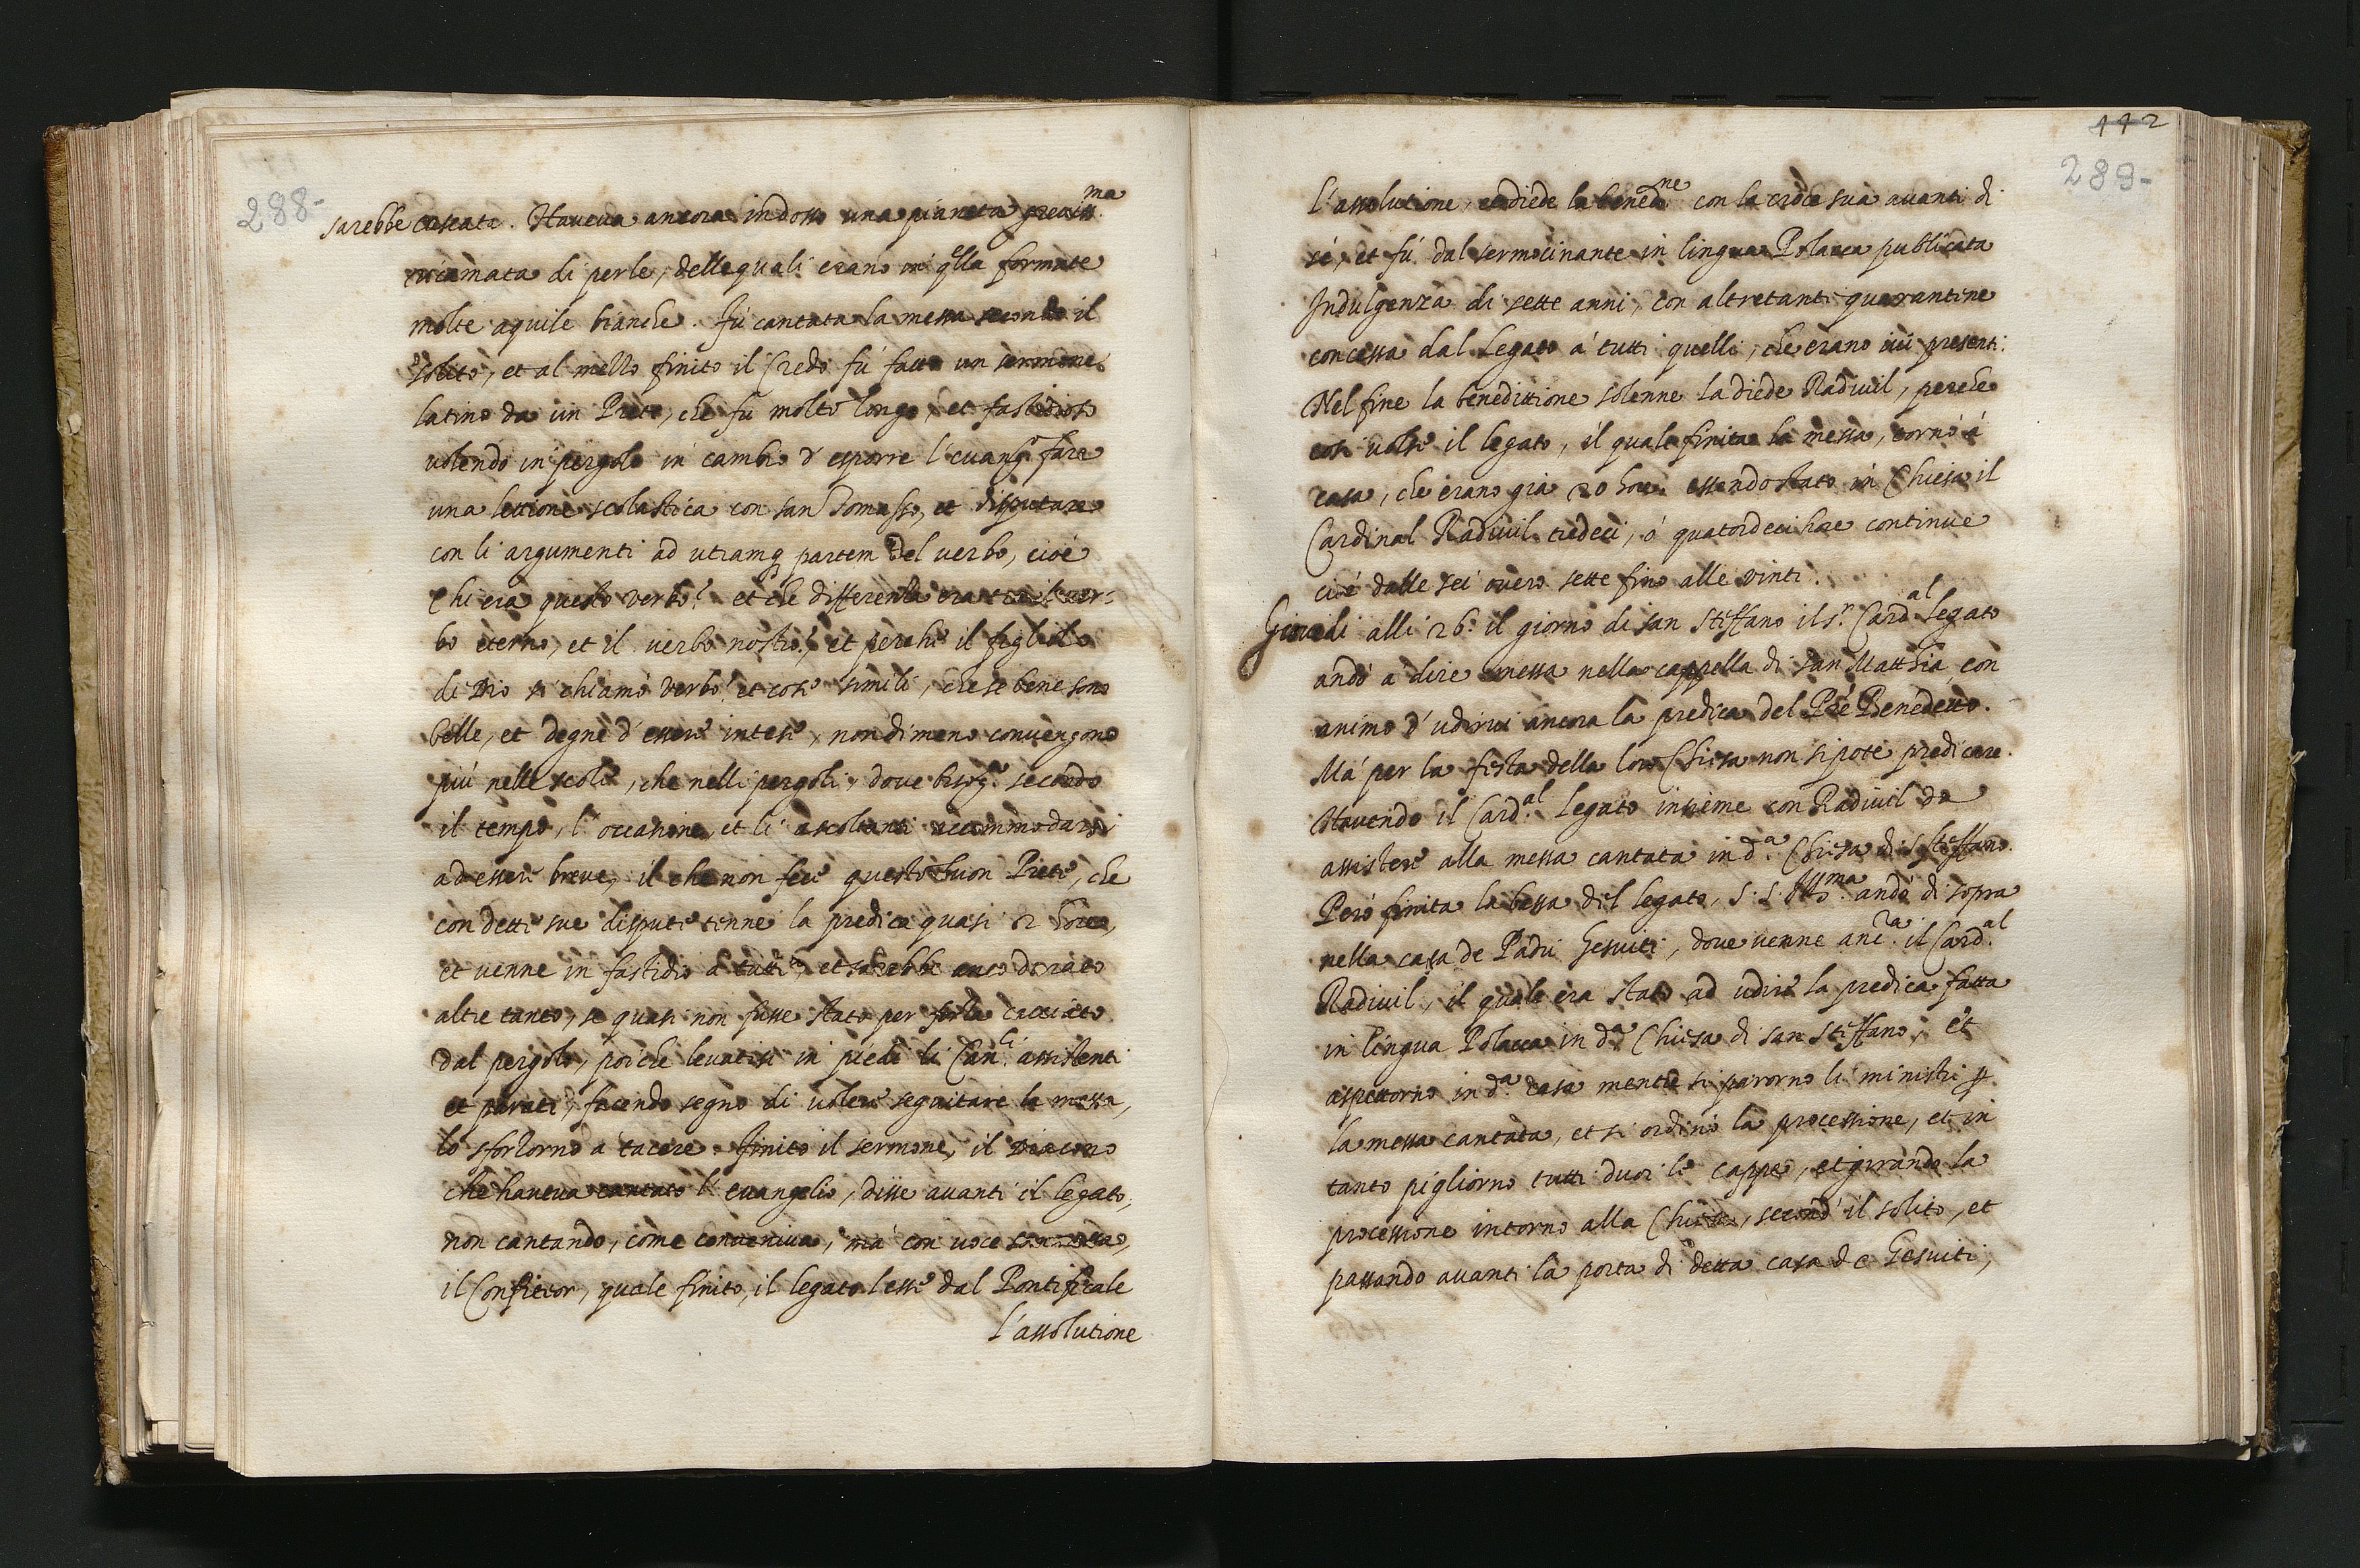 288-
sarebbe cascata. Haveva ancora indosso una pianeta preciss.ma
ricamata di perle, delle quali erano in q.lla formate
molte aquile bianche. Fù cantata la messa secondo il
solito, et al mezzo finito il Credo fù fatto un sermone
latino da un Prete, che fù molto longo, et fastidioso
volendo in pergolo in cambio d'esporre l'evang.o fare
una lettione scolastica con san Tomasso, et disputare
con li argumenti ad utramq partem del verbo, cioè
Chi era questo verbo? et che differenza era tra il ver-
bo eterno, et il verbo nostro? et perche il figliolo
di Dio si chiamò verbo? et cose simili, che se bene sono
belle, et degne d'essere intese, nondimeno convengono
più nelle scole, che nelli pergoli, dove bisog.a secondo
il tempo, l'occasione, et li ascoltanti accommodarsi
ad essere breve, il che non fece questo buon Prete, che
con dette sue dispute tenne la predica quasi 2 hore,
et venne in fastidio a tutti, et sarebbe anco durato
altre tanto, se quasi non fusse stato per forza cacciato
dal pergolo, poiche levatisi in piedi li Can.ci assistenti
et parati, facendo segno di volere seguitare la messa,
lo sforzorno a tacere. Finito il sermone, il Diacono
che haveva cantato l'evangelio, disse avanti il legato,
non cantando, come conveniva, mà con voce sommessa,
il Confiteor, quale finito, il legato lesse dal Pontificale
l'assolutione
112
289-
l'assolutione, et diede la bened.ne con la croce sua avanti di
sé, et fù dal sermocinante in lingua Polacca publicata
Indulgenza di sette anni, con altretanti quarantine
concessa dal Legato à tutti quelli, che erano ivi presenti.
Nel fine la benedittione solenne la diede Radivil, perche
così volse il legato, il quale finita la messa, tornò à
casa, che erano già 20 hore essendo stato in Chiesa il
Cardinal Radivil tredeci, ò quatordeci hore continue
cioè dalle sei overo sette fino alle vinti.
Giovedi alli 26. il giorno di san Steffano il s.r Card.al Legato
andò a dire messa nella cappella di san Matthia, con
animo d'udirvi ancora la predica del Pre Benedetto.
Mà per la festa della loro Chiesa non si potè predicare.
Havendo il Card.al Legato insieme con Radivil da
assistere alla messa cantata in d.a Chiesa di s. Steffano.
Però finita la bassa del legato, S. S. Ill.ma andò di sopra
nella casa de Padri Gesuiti, dove venne anc.ra il Card.al
Radivil, il quale era stato ad udire la predica fatta
in lingua Polacca in d.a Chiesa di san Steffano, et
aspettorno in d.a casa mentre si parorno li ministri p
la messa cantata, et si ordinò la processione, et in
tanto pigliorno tutti duoi le cappe, et girando la
processione intorno alla Chiesa, second' il solito, et
passando avanti la porta di detta casa de Gesuiti,